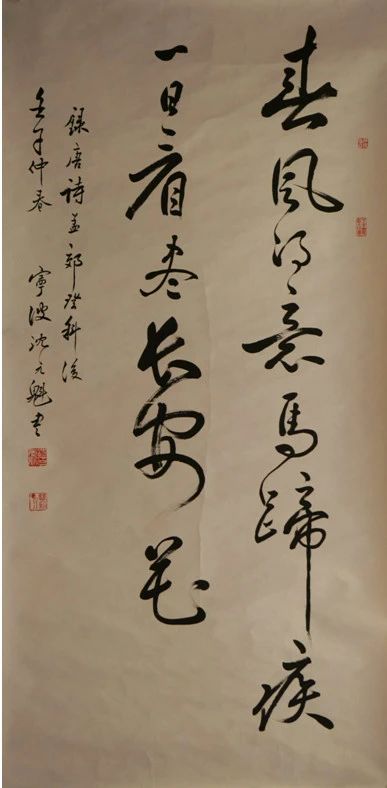 春風得意馬蹄疾
一日看盡長安花
錄唐詩孟郊登科後
壬午仲春 寧波沈元魁書